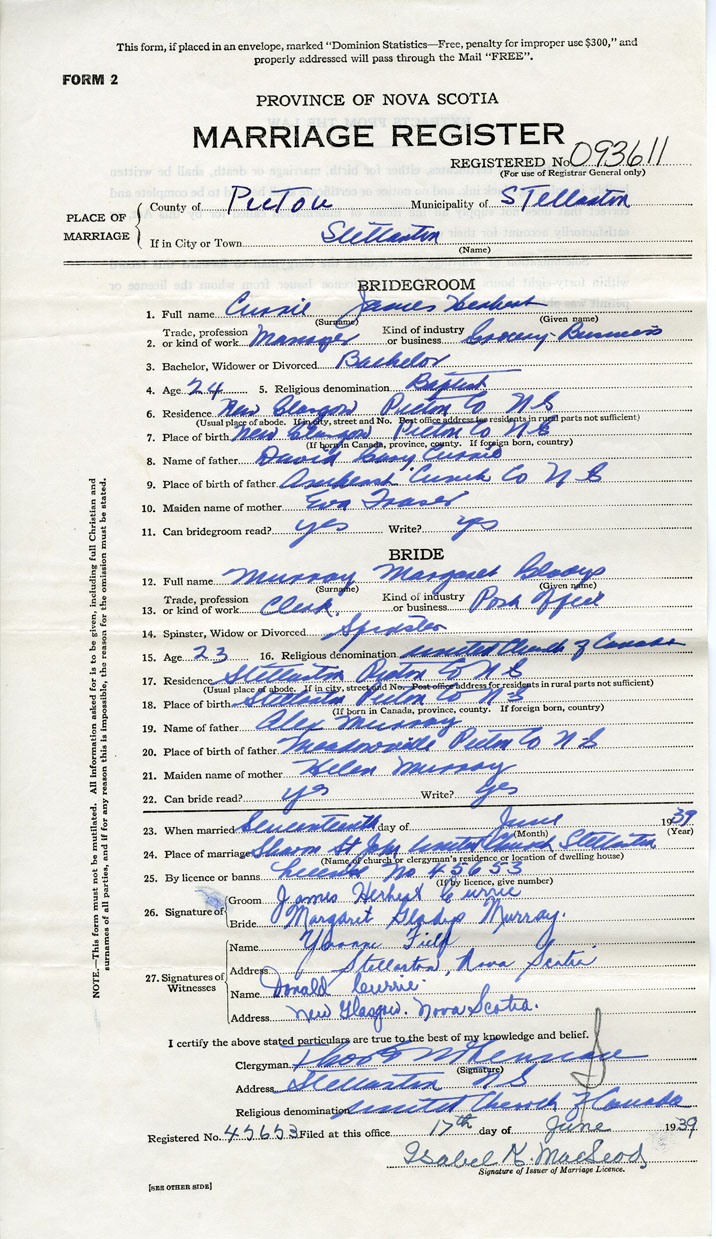 This form, if placed in an envelope, marked “Dominion Statistics—Free, penalty for improper use $300,” and
properly addressed will pass through the Mail “FREE”.
FORM 2
PROVINCE OF NOVA SCOTIA
MARRIAGE REGISTER
REGISTERED No. 093611
(For use of Registrar General only)
PLACE OF MARRIAGE
County of Pictou Municipality of Stellarton
If in City or Town Stellarton
(Name)
BRIDEGROOM
1. Full name Currie James Herbert
(Surname) (Given name)
2. Trade, profession or kind of work Manager Kind of industry or business Grocery Business
3. Bachelor, Widower or Divorced Bachelor
4. Age 24 5. Religious denomination Baptist
6. Residence New Glasgow Pictou Co N S
(Usual place of abode. If in city, street and No. Post office address for residents in rural parts not sufficient)
7. Place of birth New Glasgow Pictou Co N S
(If born in Canada, province, county. If foreign born, country)
8. Name of father David Currie
9. Place of birth of father Co N S
10. Maiden name of mother Eva Fraser
11. Can bridegroom read? yes Write? yes
BRIDE
12. Full name Murray Margaret Gladys
(Surname) (Given name)
13. Trade, profession or kind of work Clerk. Kind of industry or business Post Office
14. Spinster, Widow or Divorced Spinster
15. Age 23 16. Religious denomination United Church of Canada
17. Residence Stellarton Pictou Co N S
(Usual place of abode. If in city, street and No. Post office address for residents in rural parts not sufficient)
18. Place of birth Stellarton Pictou Co N S
(If born in Canada, province, county. If foreign born, country)
19. Name of father Alex Murray
20. Place of birth of father Meadowville Pictou Co N S
21. Maiden name of mother Helen Murray
22. Can bride read? yes Write? yes
23. When married Seventeenth day of June 1939
(Month) (Year)
24. Place of marriage Sharon St John United Church Stellarton
(Name of church or clergyman's residence or location of dwelling house)
25. By licence or banns License No 45653
(If by licence, give number)
26. Signature of
Groom James Herbert Currie
Bride Margaret Gladys Murray.
27. Signatures of Witnesses
Name Field
Address Stellarton, Nova Scotia
Name Donald Currie.
Address New Glasgow. Nova Scotia.
I certify the above stated particulars are true to the best of my knowledge and belief.
Clergyman
(Signature)
Address Stellarton N S
Religious denomination United Church of Canada
Registered No. 45653 Filed at this office 17th day of June 1939
Isabel K. MacLeod
Signature of Issuer of Marriage Licence.
[SEE OTHER SIDE]
NOTE.—This form must not be mutilated. All information asked for is to be given, including full Christian and
surnames of all parties, and if for any reason this is impossible, the reason for the omission must be stated.